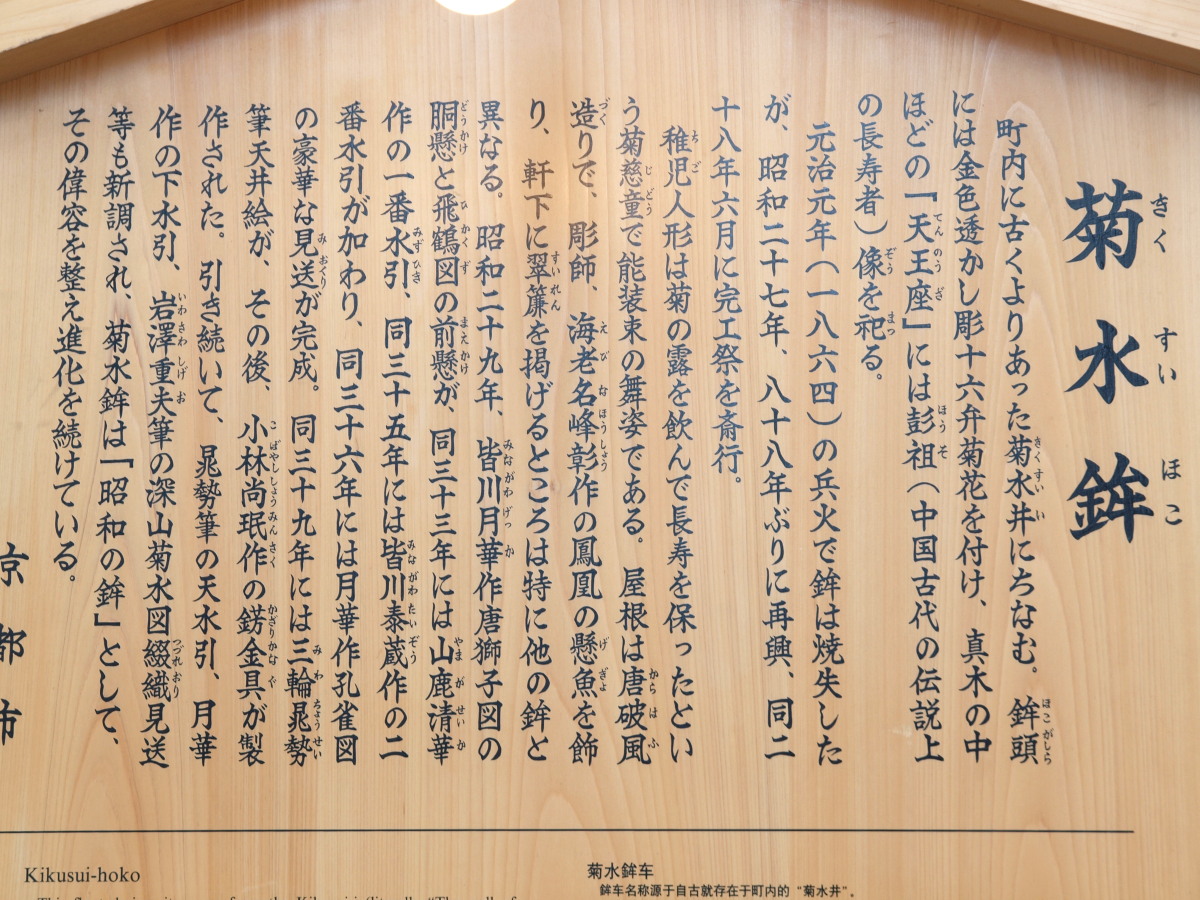 菊水鉾
きくすいほこ
町内に古くよりあった菊水井にちなむ。鉾頭
には金色透かし彫十六弁菊花を付け、真木の中
ほどの「天王座」には彭祖（中国古代の伝説上
の長寿者）像を祀る。
元治元年（一八六四）の兵火で鉾は焼失した
が、昭和二十七年、八十八年ぶりに再興、同二
十八年六月に完工祭を斎行。
稚児人形は菊の露を飲んで長寿を保ったとい
う菊慈童で能装束の舞姿である。屋根は唐破風
造りで、彫師、海老名峰彰作の鳳凰の懸魚を飾
り、軒下に翠簾を掲げるところは特に他の鉾と
異なる。昭和二十九年、皆川月華作唐獅子図の
胴懸と飛鶴図の前懸が、同三十三年には山鹿清華
作の一番水引、同三十五年には皆川泰蔵作の二
番水引が加わり、同三十六年には月華作孔雀図
の豪華な見送が完成。同三十九年には三輪晁勢
筆天井絵が、その後、小林尚珉作の錺金具が製
作された。引き続いて、晁勢筆の天水引、月華
作の下水引、岩澤重夫筆の深山菊水図綴織見送
等も新調され、菊水鉾は「昭和の鉾」として、
その偉容を整え進化を続けている。
京都市
Kikusui-hoko
菊水鉾车
鉾车名称源于自古就存在于町内的“菊水井”。